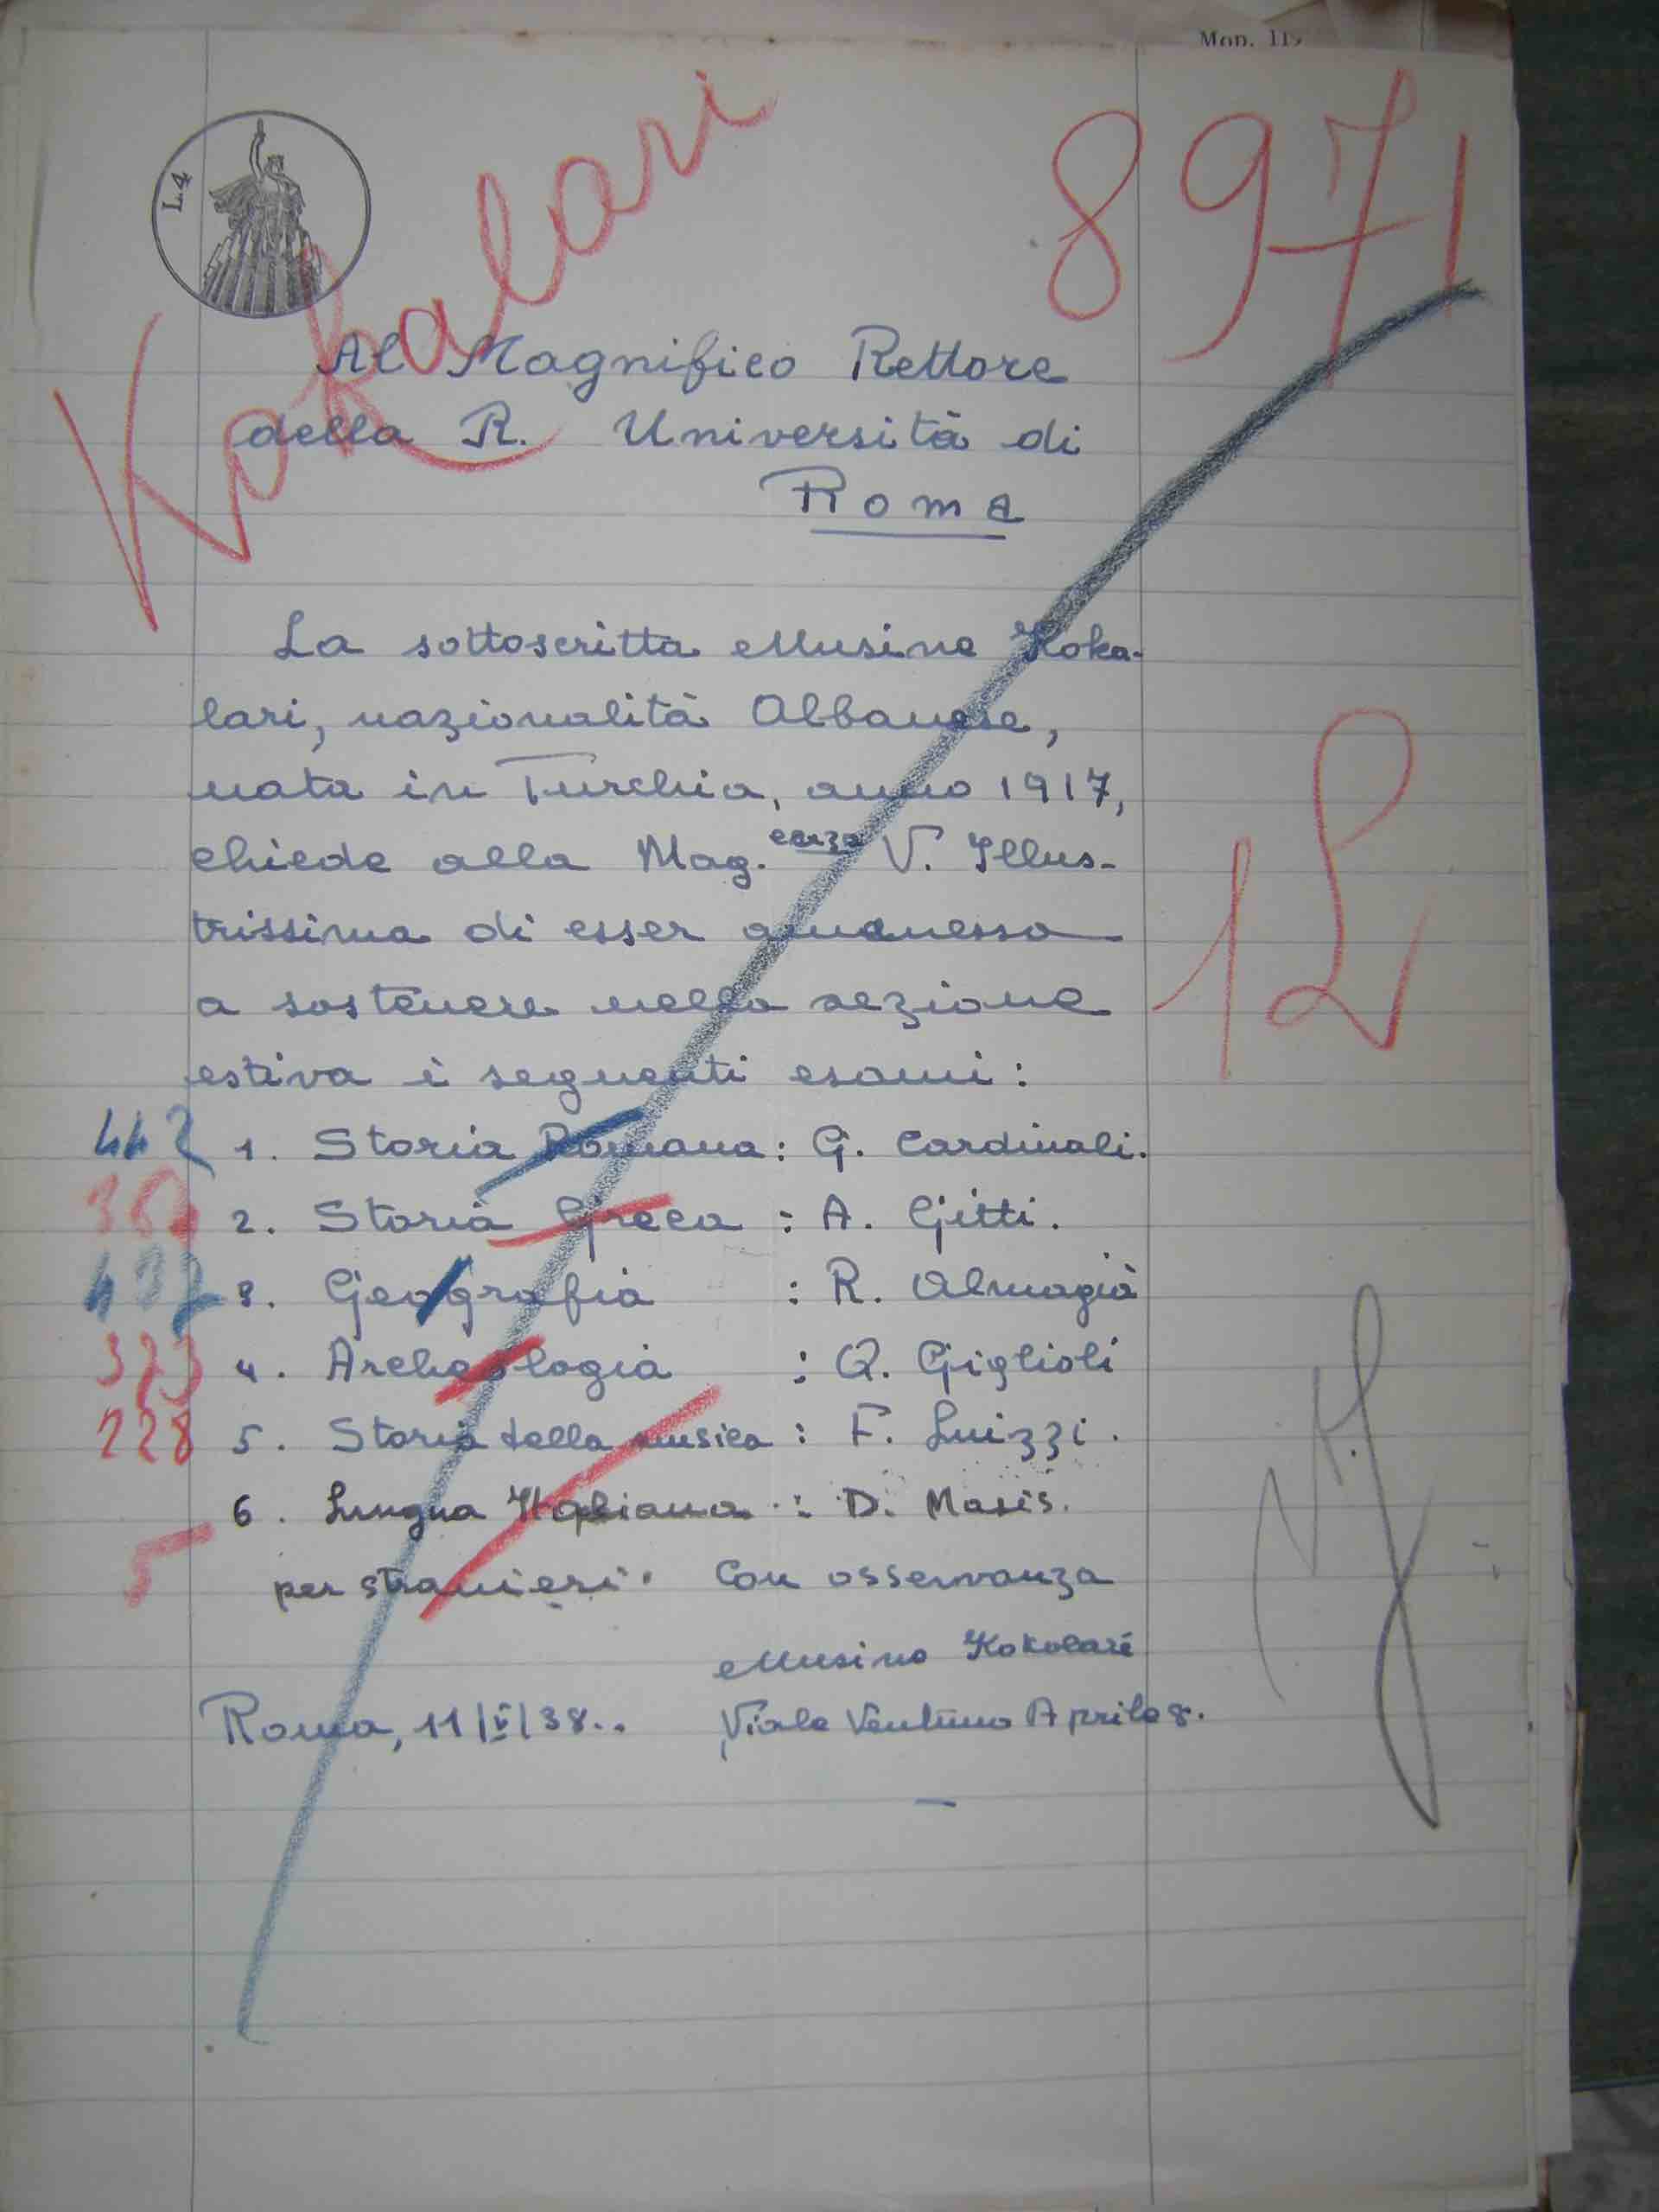 Mod. 11
L.4
Kokalari
8971
Al Magnifico Rettore
della R. Università di
Roma
La sottoscritta Musine Koka-
lari, nazionalità Albanese,
nata in Turchia, anno 1917,
chiede alla Mag. enza V. Illus-
trissima di esser ammessa
a sostenere nella sezione
estiva i seguenti esami:
442 1. Storia Romana: G. Cardinali.
2. Storia Greca : A. Gitti.
3. Geografia : R. Almagià
323 4. Archeologia : Q. Giglioli
228 5. Storia della musica : F. Luizzi.
6. Lingua Italiana : D. Masis.
5 per stranieri. Con osservanza
Musine Kokalari
Roma, 11/V/38.. Viale Ventuno Aprile 8.
1L